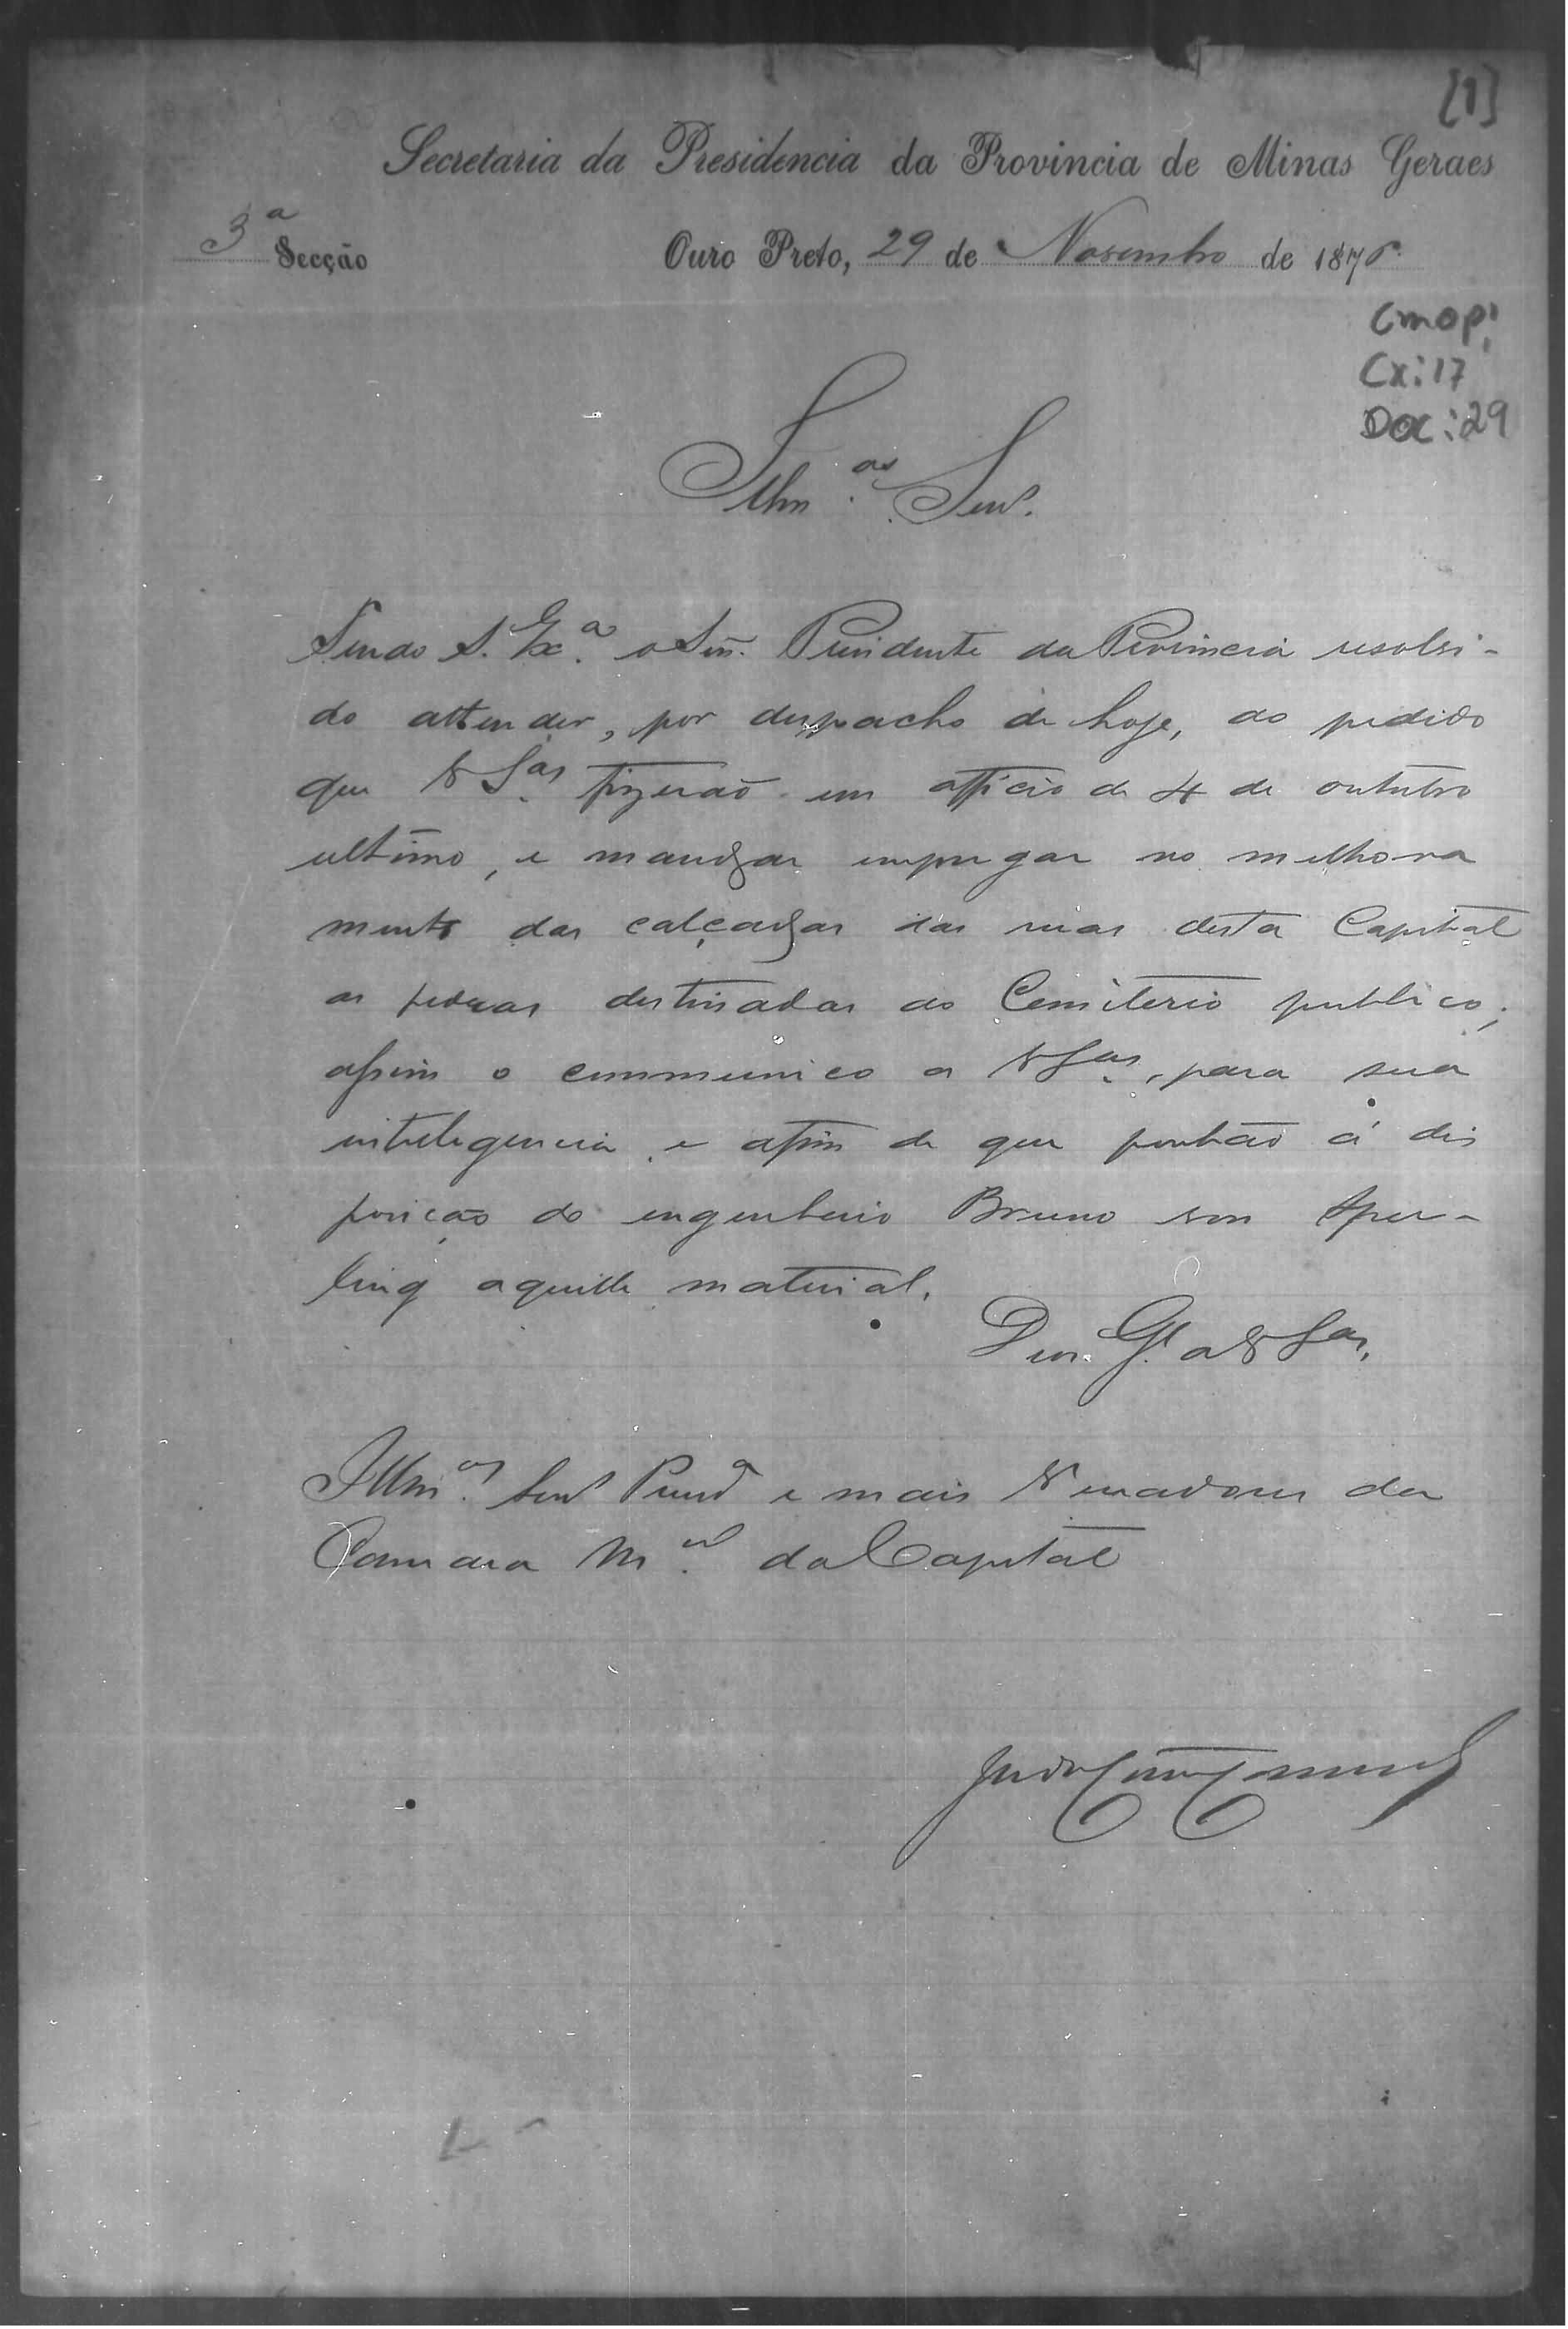 [1]
Secretaria da Presidencia da Provincia de Minas Geraes
3ª Secção
Ouro Preto, 29 de Novembro de 187
CMOP
Cx: 17
Doc: 29
Illm.os Senr.
Tendo S. Ex.ª o Snr. Presidente da Provincia resolvi-
do attender, por despacho de hoje, ao pedido
que V S.as fizerão em officio de 4 de outubro
ultimo, e mandar empregar no melhora
mento das calçadas das ruas desta Capital
as pedras destinadas ao Cemiterio publico;
assim o communico a V S.as, para sua
intelligencia e afim de que ponhão á dis
posição do engenheiro Bruno von Sper-
ling aquelle material.
Deus G.e a V S.as,
Illm.os Senr.s Presid.e e mais Vereadores da
Camara M.al da Capital